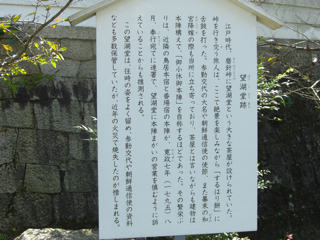 望湖堂跡
江戸時代、磨針峠に望湖堂という大きな茶屋が設けられていた。
峠を行き交う旅人は、ここで絶景を楽しみながら「するはり餅」に
舌鼓を打った。参勤交代の大名や朝鮮通信使の使節、また幕末の和
宮降嫁の際も当所に立ち寄っており、茶屋とは言いながらも建物は
本陣構えで、「御小休御本陣」を自称するほどであった。その繁栄ぶ
りは、近隣の鳥居本宿と番場宿の本陣が、寛政七年(一七九五)八
月、奉行宛てに連署で、望湖堂に本陣まがいの営業を慎むように訴
えていることからも推測される。
この望湖堂は、往時の姿をよく留め、参勤交代や朝鮮通信使の資料
なども多数保管していたが、近年の火災で焼失したのが惜しまれる。